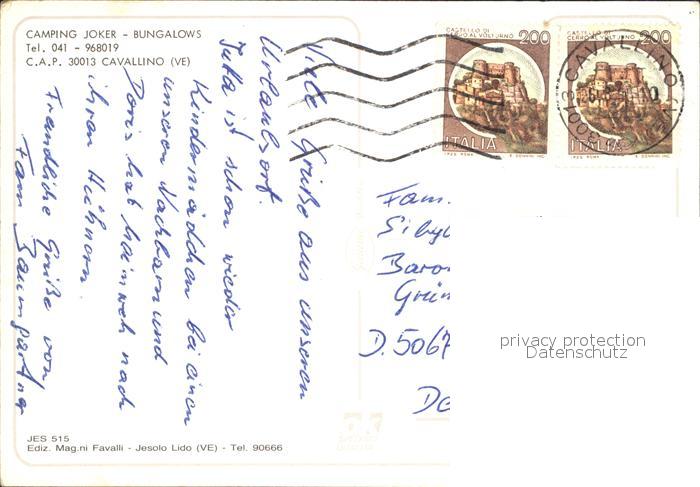 CAMPING JOKER - BUNGALOWS
Tel. 041 - 968019
C.A.P. 30013 CAVALLINO (VE)
Viele Grüße aus unseren
Urlaubsort.
Jutta ist schon wieder
Kindermädchen bei einen
unseren Nachbarn und
Doris hat heimweh nach
ihren Hühnern.
Freundliche Grüße von
Fam Baumgartner
CASTELLO DI
CERRO AL VOLTURNO 200
ITALIA
CASTELLO DI
CERRO AL VOLTURNO 200
ITALIA
CAVALLINO
Fam.
Baro
Grün
D. 5067
De
privacy protection
Datenschutz
JES 515
Ediz. Mag.ni Favalli - Jesolo Lido (VE) - Tel. 90666